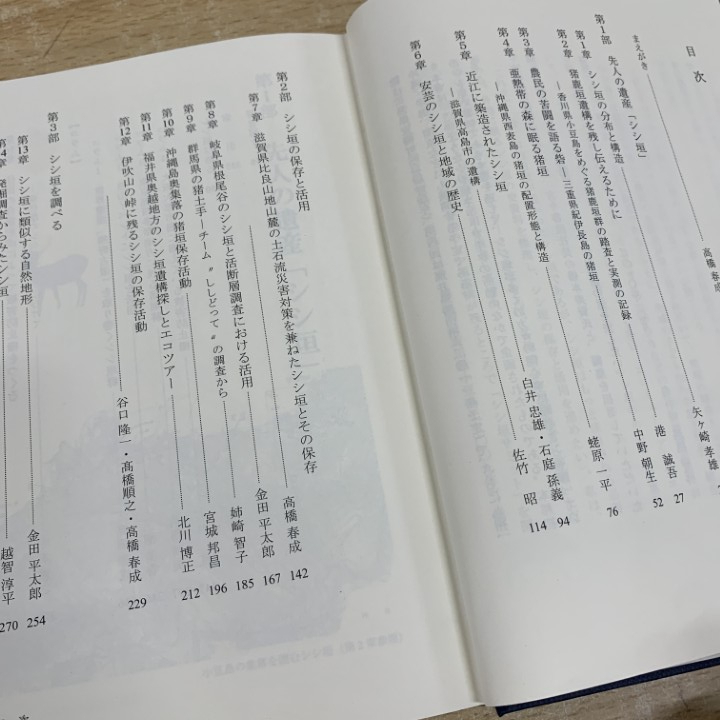 目次
まえがき 高橋 春成
第1部 先人の遺産「シシ垣」
第1章 シシ垣の分布と構造 矢ヶ崎 孝雄
第2章 猪鹿垣遺構を残し伝えるために 港 誠吾 27
―香川県小豆島をめぐる猪鹿垣群の踏査と実測の記録
中野 朝生 52
第3章 農民の苦闘を語る砦―三重県紀伊長島の猪垣
第4章 亜熱帯の森に眠る猪垣 蛯原 一平 76
―沖縄県西表島の猪垣の配置形態と構造
第5章 近江に築造されたシシ垣 白井 忠雄・石庭 孫義 94
―滋賀県高島市の遺構
第6章 安芸のシシ垣と地域の歴史 佐竹 昭 114
第2部 シシ垣の保存と活用
第7章 滋賀県比良山地山麓の土石流災害対策を兼ねたシシ垣とその保存 高橋 春成 142
第8章 岐阜県根尾谷のシシ垣と活断層調査における活用 金田 平太郎 167
第9章 群馬県の猪土手―チーム〝ししどって〟の調査から 姉崎 智子 185
第10章 沖縄島奥集落の猪垣保存活動 宮城 邦昌 196
第11章 福井県奥越地方のシシ垣遺構探しとエコツアー 北川 博正 212
第12章 伊吹山の峠に残るシシ垣の保存活動 谷口 隆一・髙橋順之・高橋 春成 229
第3部 シシ垣を調べる
第13章 シシ垣に類似する自然地形 金田 平太郎 254
第14章 発掘調査からみたシシ垣 越智 淳平 270
次